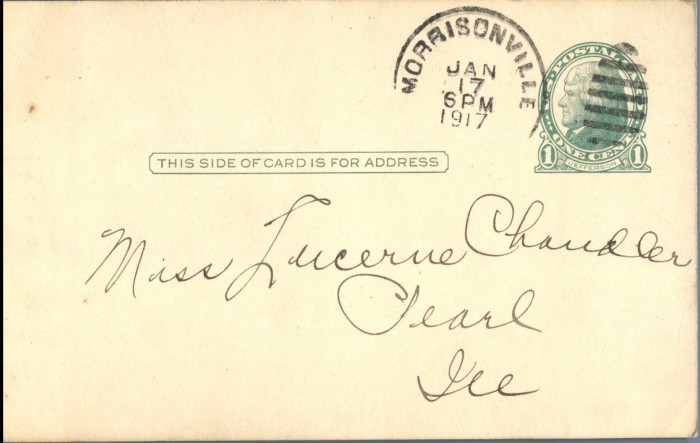 MORRISONVILLE
JAN
17
6 PM
1917
U.S. POSTAL
ONE CENT
1 JEFFERSON 1
THIS SIDE OF CARD IS FOR ADDRESS
Miss Lucerne Chandler
Pearl
Ill